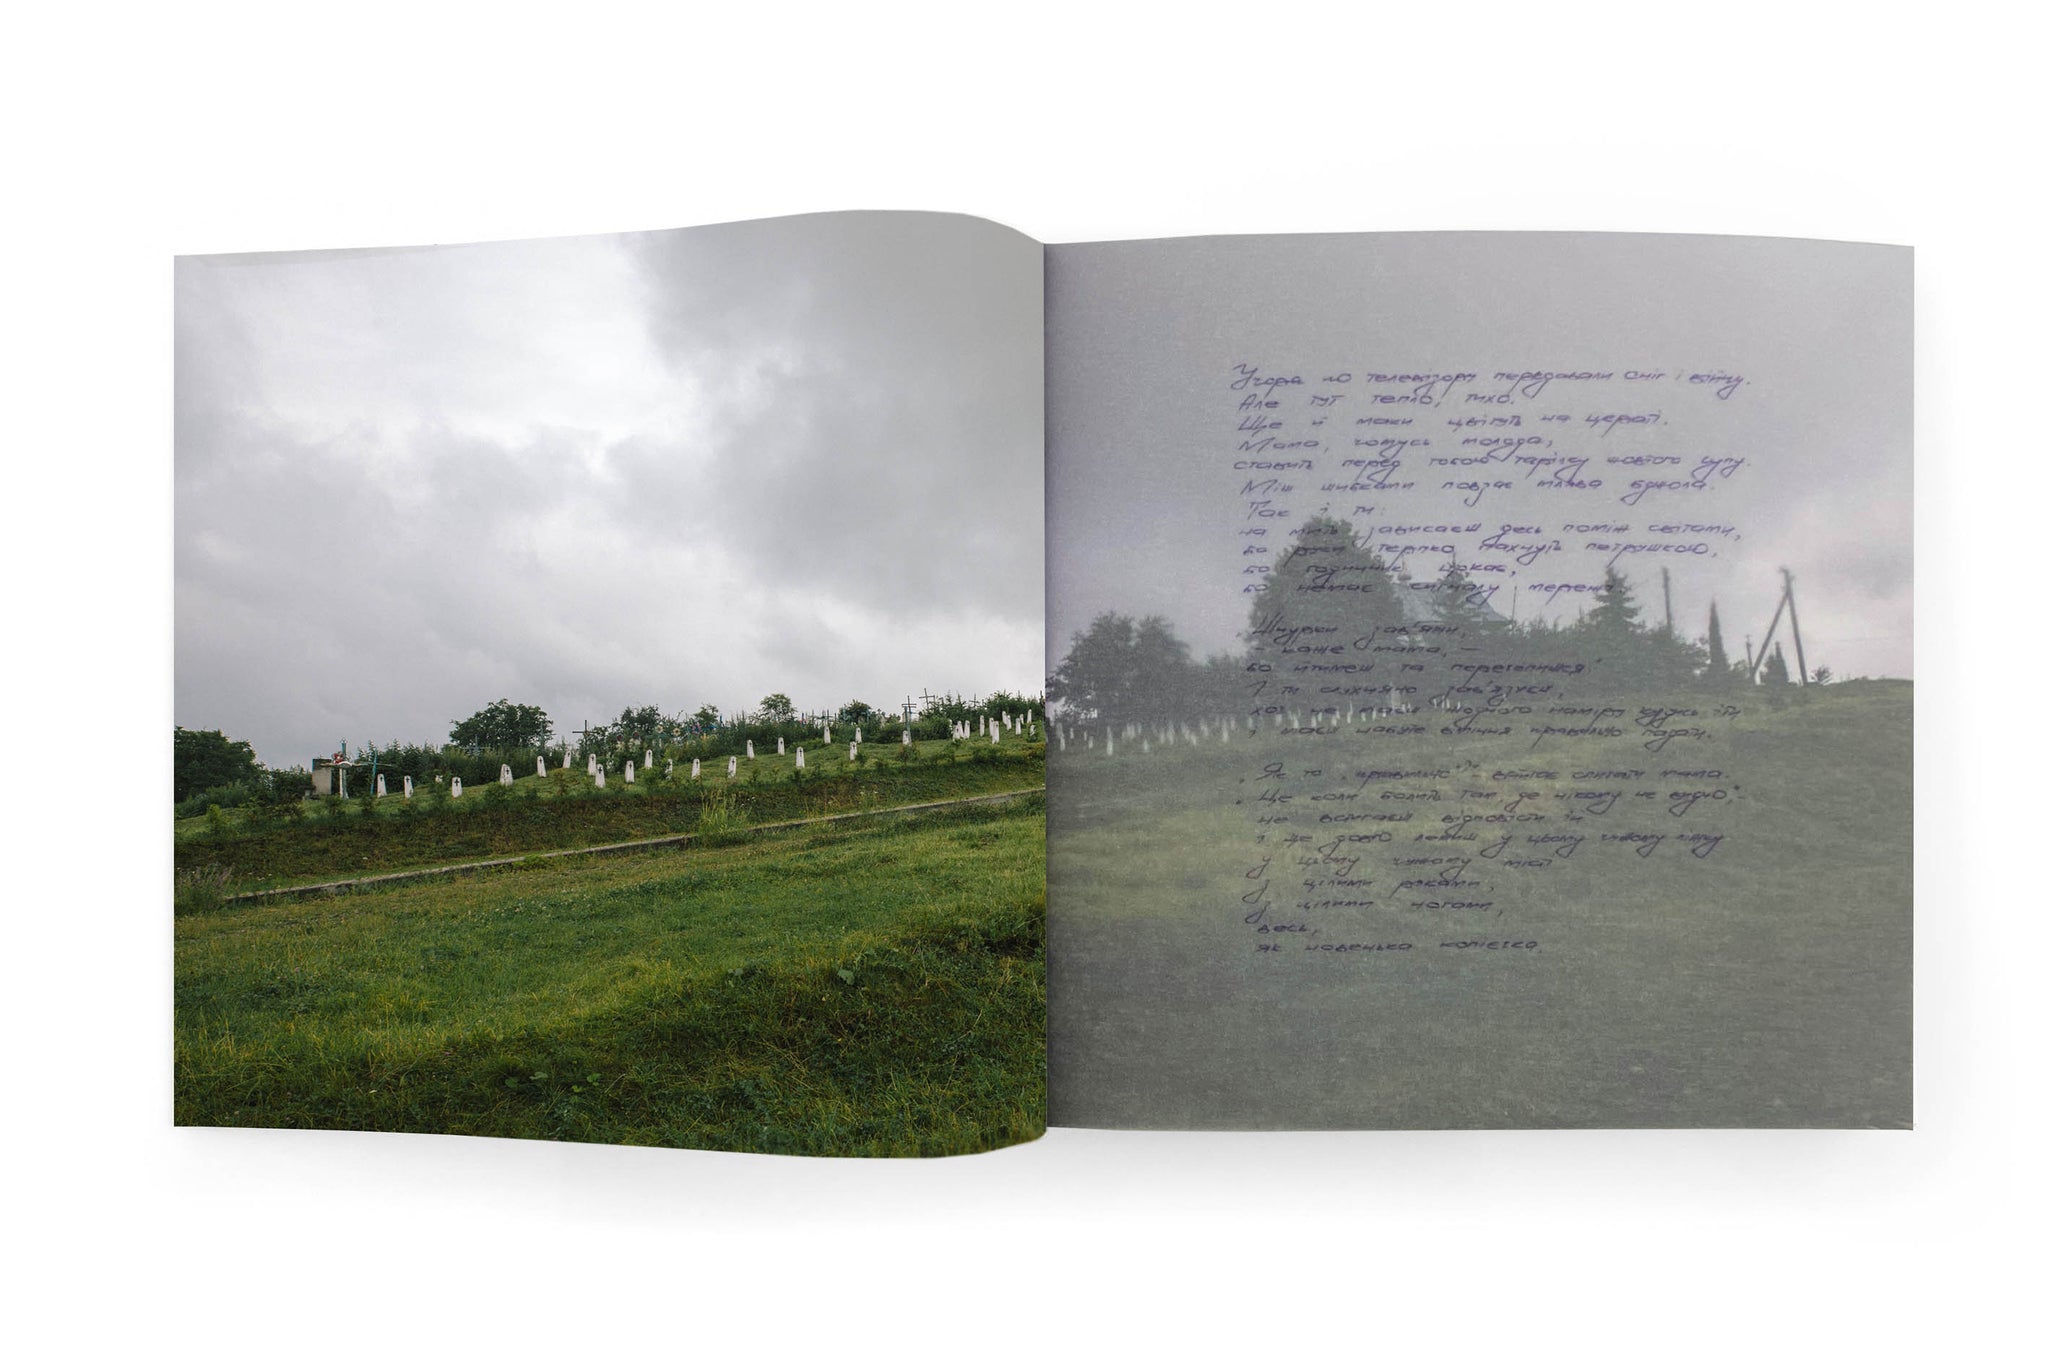 Учора по телевізору передавали сніг і війну.
Але тут тепло, тихо.
Ще й маки цвітуть на цераті.
Мама, чомусь молода,
ставить перед тобою тарілку жовтого супу.
Між шибками повзає млява бджола.
Так і ти:
на мить зависаєш десь поміж світами,
бо руки терпко пахнуть петрушкою,
бо годинник цокає,
бо немає сигналу мережі.
Шнурки зав'яжи,
– каже мама, –
бо йтимеш та перечепишся.
І ти слухняно зав'язуєш,
хоч не маєш жодного наміру кудись іти
і маєш набуте вміння правильно падати.
„Як то „правильно"?" – встигає спитати мама.
„Це коли болить там, де нікому не видно", –
не встигаєш відповісти їй
і ще довго лежиш у цьому чужому
у цьому чужому місті
з цілими руками,
з цілими ногами,
весь,
як новенька копієчка.